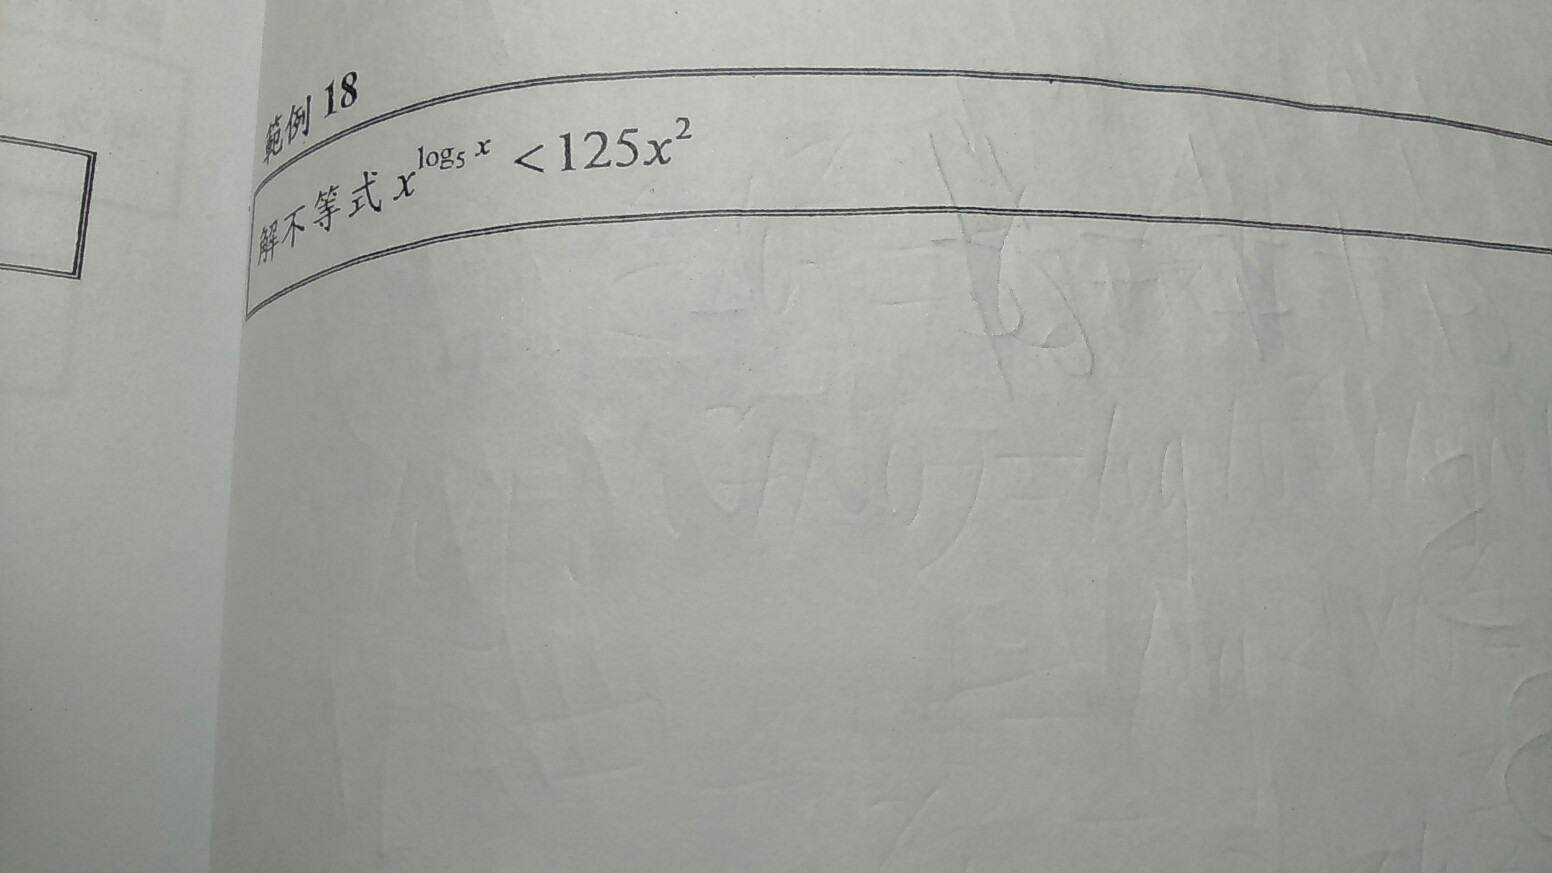 範例 18
解不等式 x^{log_5 x} < 125x^2